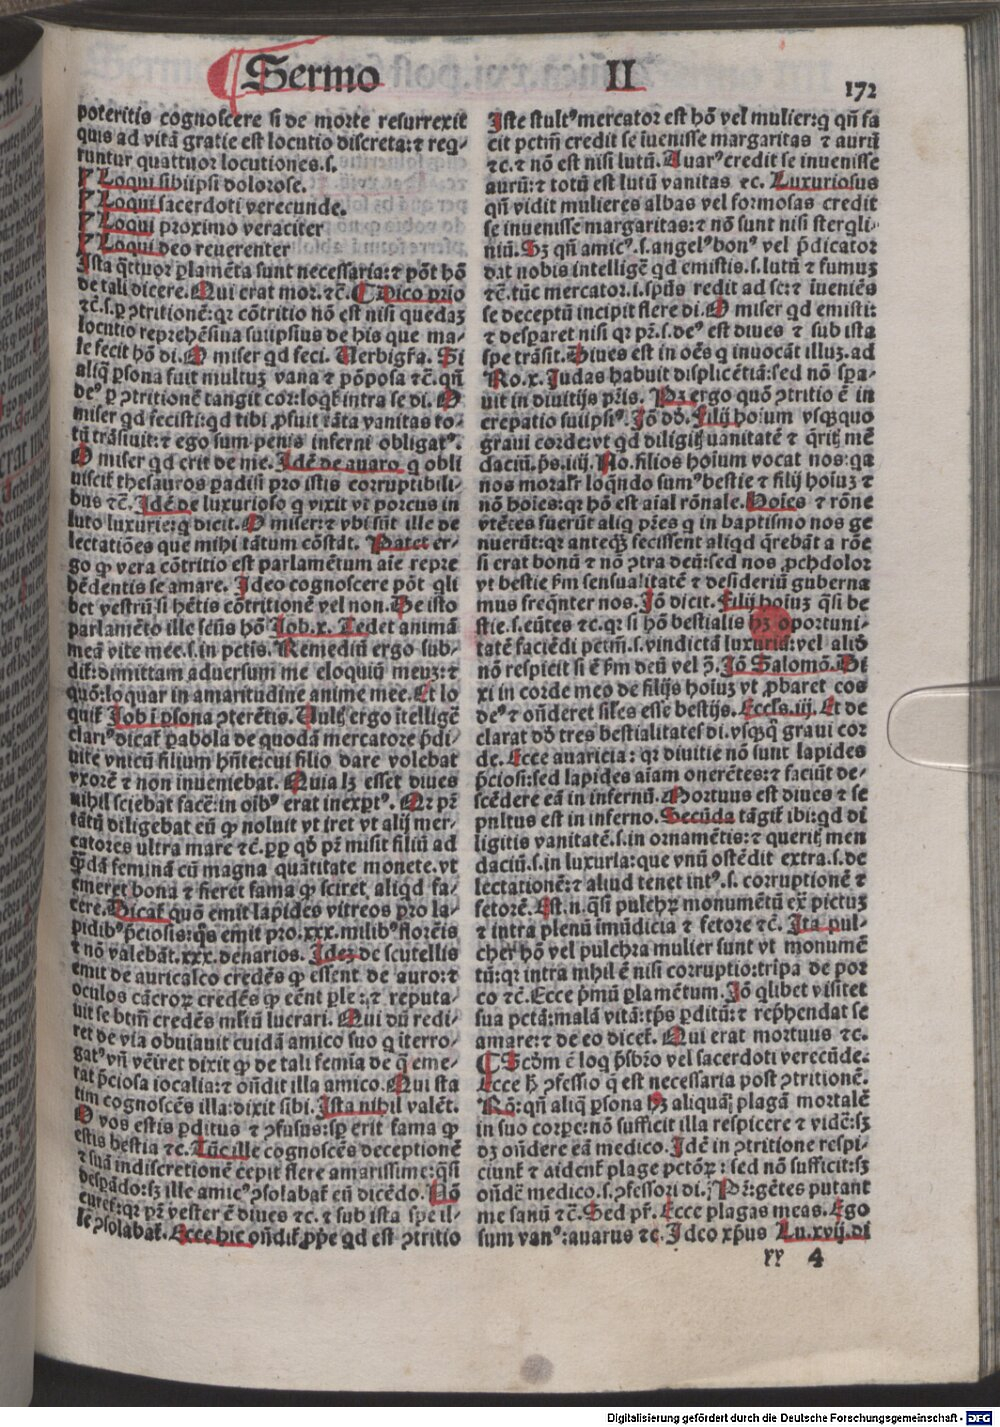 Sermo II 172
poteritis cognoscere si de morte resurrexit
quis ad vitā gratie est locutio discreta: ⁊ req-
runtur quattuor locutiones .s.
Loqui sibiipsi dolorose.
Loqui sacerdoti verecunde.
Loqui proximo veraciter
Loqui deo reuerenter
Ista q̄ttuor ꝑlamēta sunt necessaria: ⁊ pōt hō
de tali dicere. Qui erat mor. ⁊c̄. Dico prīo
⁊c̄. s. ꝑ ꝯtritionē: qꝛ cōtritio nō est nisi quedaꝫ
locutio reprehēsiua suiipsius de his que ma-
le fecit hō di. O miser qd feci. Uerbigr̄a. Si
aliq̄ ꝑsona fuit multuꝫ vana ⁊ pōposa ⁊c̄. qn̄
deꝰ ꝑ ꝯtritionē tangit cor: loqͥt intra se di. O
miser qd fecisti: qd tibi ꝓfuit tāta vanitas to-
tū trāsiuit: ⁊ ego sum penis inferni obligatꝰ.
O miser qd erit de me. Idē de auaro q obli
uiscit̄ thesauros ꝑadisi pro istis corruptibili-
bus ⁊c̄. Idē de luxurioso q vixit vt porcus in
luto luxurie: q dicit. O miser: ⁊ vbi sūt ille de
lectatiōes que mihi tātum cōstāt. Patet er-
go ꝙ vera cōtritio est parlamētum aīe repre
hēdentis se amare. Ideo cognoscere pōt qli
bet vestrū si hētis cōtritionē vel non. De isto
parlamēto ille scūs hō Iob .x. Tedet animā
meā vite mee .s. in pctīs. Remediū ergo sub-
dit̄: dimittam aduersum me eloquiū meuꝫ: ⁊
quō: loquar in amaritudine anime mee. Et lo
quit̄ Iob ī ꝑsona ꝯterētis. Uultꝭ ergo ītelligē
clariꝰ dicat̄ ꝑabola de quodā mercatore p̄di-
uite vnicū filium hn̄te: cui filio dare volebat
vxorē ⁊ non inueniebat. Quia lꝫ esset diues
nihil sciebat facē: in oībꝰ erat inexptꝰ. Qꝛ pr̄
tātū diligebat eū ꝙ noluit vt iret vt alij mer-
catores vltra mare ⁊c̄. ꝓp qd̄ pr̄ misit filiū ad
quādā feminā cū magna quātitate monete. vt
emeret bona ⁊ fieret fama ꝙ sciret aliqd fa-
cere. Dicat̄ quō emit lapides vitreos pro la-
pidibꝰ p̄ciosis: q̄s emit pro .xxx. milibꝰ florēis
⁊ nō valebāt .xxx. denarios. Ideꝫ de scutellis
emit de auricalco credēs ꝙ essent de auro: ⁊
oculos cācroꝝ credēs ꝙ eēnt ꝑle: ⁊ reputa-
uit se btm̄ credēs mltū lucrari. Qui dū redi-
ret de via obuiauit cuidā amico suo q īterro-
gatꝰ vn̄ vēiret dixit ꝙ de tali femīa de q̄ eme-
rat p̄ciosa iocalia: ⁊ on̄dit illa amico. Qui sta
tim cognoscēs illa: dixit sibi. Ista nihil valēt.
O vos estis ꝑditus ⁊ ꝯfusus: sꝑ erit fama ꝙ
estis bestia ⁊c. Tūc ille cognoscēs deceptionē
⁊ suā indiscretionē cepit flere amarissime: q̄si
despādo: sꝫ ille amicꝰ ꝯsolabat̄ eū dicēdo. Nō
curet̄: qꝛ pr̄ vester ē diues ⁊c. ⁊ sub ista spe il-
le ꝯsolabat̄. Ecce hic on̄dit̄ ꝓpe qd est ꝯtritio
Iste stultꝰ mercator est hō vel mulier: q qn̄ fa
cit pctm̄ credit se īuenisse margaritas ⁊ aurū
⁊c. ⁊ nō est nisi lutū. Auarꝰ credit se inuenisse
aurū: ⁊ totū est lutū vanitas ⁊c. Luxuriosus
qn̄ vidit mulieres albas vel formosas credit
se inuenisse margaritas: ⁊ nō sunt nisi stergli-
niū. Sꝫ qn̄ amicꝰ .s. angelꝰ bonꝰ vel p̄dicator
dat nobis intelligē qd emistis .s. lutū ⁊ fumuꝫ
⁊c̄. tūc mercator .i. spūs redit ad se: ⁊ īueniēs
se deceptū incipit flere di. O miser qd emisti:
⁊ despāret nisi qꝛ pr̄ .s. deꝰ est diues ⁊ sub ista
spe trāsit. Diues est in oēs q inuocāt illuꝫ. ad
Ro. x. Iudas habuit displicētiā: sed nō spa-
uit in diuitijs pr̄is. Pꝫ ergo quō ꝯtritio ē in
crepatio suiipsiꝰ. Iō dō. Filij hoīum vsqꝫquo
graui corde: vt qd diligitꝭ vanitatē ⁊ q̄ritꝭ mē
daciū. ps. iiij. No. filios hoīum vocat nos: qa
nos moralr̄ loqndo sumꝰ bestie ⁊ filij hoīuꝫ ⁊
nō hoīes: qꝛ hō est aīal rōnale. Hoīes ⁊ rōne
vtētes fuerūt aliq pr̄es q in baptismo nos ge
nuerūt: qꝛ anteqꝫ fecissent aliqd q̄rebāt a rōe
si erat bonū ⁊ nō ꝯtra deū: sed nos ꝓchdolor
vt bestie ẜm sensualitatē ⁊ desideriū guberna
mus freqn̄ter nos. Iō dicit. Filij hoīuꝫ q̄si be
stie .s. eūtes ⁊c. qꝛ si hō bestialis hꝫ oportuni-
tatē faciēdi pctm̄ .s. vindictā luxuriā: vel aliud
nō respicit si ē ẜm deū vel ꝯ. Iō Salomō. Di
xi in corde meo de filijs hoīuꝫ vt ꝓbaret eos
deꝰ ⁊ on̄deret siles esse bestijs. Eccls. iij. Et de
clarat dō tres bestialitates di. vsqꝫq̄ graui cor
de. Ecce auaricia: qꝛ diuitie nō sunt lapides
p̄ciosi: sed lapides aīam onerētes: ⁊ faciūt de-
scēdere eā in infernū. Mortuus est diues ⁊ se
pultus est in inferno. Secūda tāgit̄ ibi: qd di
ligitis vanitatē .s. in ornamētis: ⁊ queritꝭ men
daciū .s. in luxuria: que vnū ostēdit extra .s. de
lectationē: ⁊ aliud tenet intꝰ .s. corruptionē ⁊
fetorē. Est .n. q̄si pulchꝝ monumētū ex̄ pictuꝫ
⁊ intra plenū imūdicia ⁊ fetore ⁊c̄. Ita pul-
cher hō vel pulchra mulier sunt vt monumē
tū: qꝛ intra nihil ē nisi corruptio: tripa de por
co ⁊c̄. Ecce p̄mū ꝑlamētum. Iō qlibet visitet
sua pctā: malā vitā: tꝑs ꝑditū: ⁊ rep̄hendat se
amare: ⁊ de eo dicet̄. Qui erat mortuus ⁊c.
Scd̄m ē loq p̄sbr̄o vel sacerdoti verecūde.
Ecce hͨ ꝯfessio q̄ est necessaria post ꝯtritionē.
Rō: qn̄ aliq̄ ꝑsona hꝫ aliquaꝫ plagā mortalē
in suo corpe: nō sufficit illa respicere ⁊ vidē: sꝫ
oꝫ on̄dere eā medico. Idē in ꝯtritione respi-
ciunt̄ ⁊ aident̄ plage pctōꝝ: sed nō sufficit: sꝫ
ondē medico .s. ꝯfessori di. Pꝫ: gētes putant
me sanū ⁊c̄. Sed pr̄. Ecce plagas meas. Ego
sum vanꝰ: auarus ⁊c. Ideo xp̄us Lu. xvij. di
yy 4
Digitalisierung gefördert durch die Deutsche Forschungsgemeinschaft - DFG